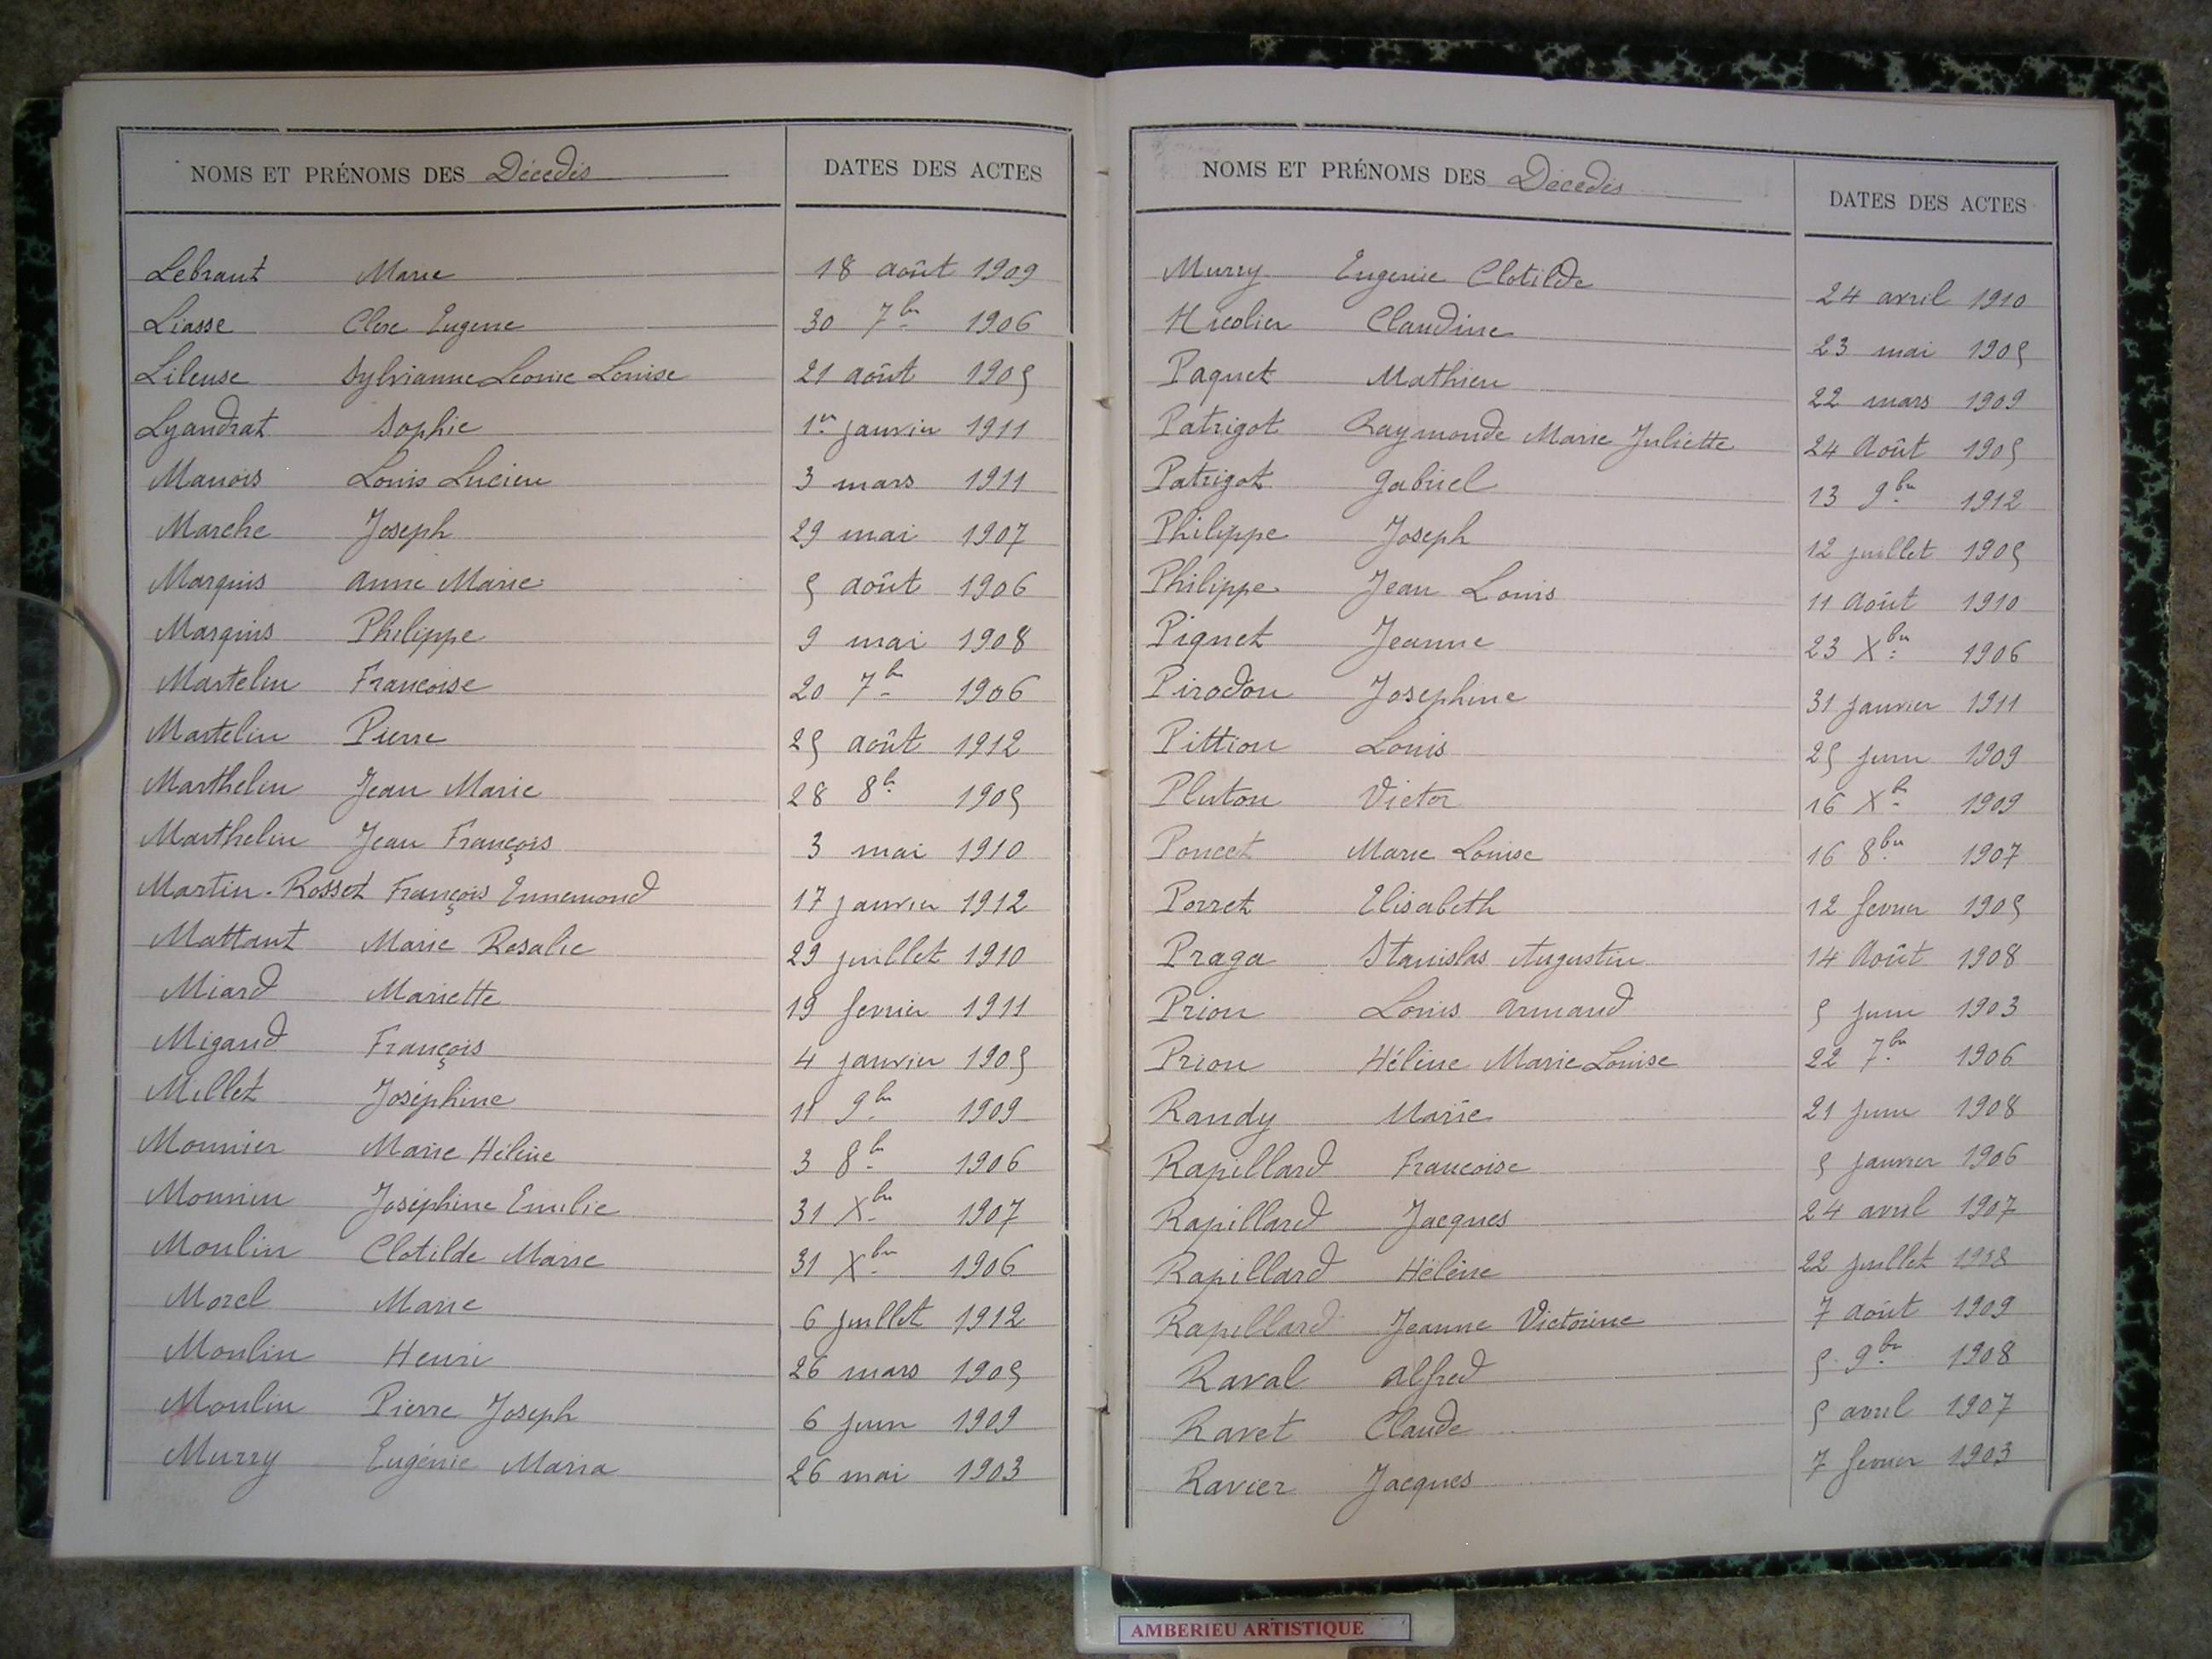 NOMS ET PRÉNOMS DES Décédés DATES DES ACTES
Lebraut Marie 18 août 1909
Liasse Clere Eugene 30 7bre 1906
Lileuse Sylvianne Leonie Louise 21 août 1905
Lyandrat Sophie 1er janvier 1911
Manois Louis Lucien 3 mars 1911
Marche Joseph 29 mai 1907
Marquis Anne Marie 5 août 1906
Marquis Philippe 9 mai 1908
Martelin Francoise 20 7bre 1906
Martelin Pierre 25 août 1912
Marthelin Jean Marie 28 8bre 1905
Marthelin Jean François 3 mai 1910
Martin-Rosset François Ennemond 17 janvier 1912
Mattant Marie Rosalie 29 juillet 1910
Miard Mariette 19 fevrier 1911
Migand François 4 janvier 1905
Millet Joséphine 11 9bre 1909
Monnier Marie Hélène 3 8bre 1906
Monnier Joséphine Emilie 31 Xbre 1907
Moulin Clotilde Marie 31 Xbre 1906
Morel Marie 6 juillet 1912
Moulin Henri 26 mars 1905
Moulin Pierre Joseph 6 juin 1909
Murry Eugénie Maria 26 mai 1903
NOMS ET PRÉNOMS DES Décédés DATES DES ACTES
Murry Eugenie Clotilde 24 avril 1910
Nicolier Claudine 23 mai 1905
Paquet Mathieu 22 mars 1909
Patrigot Raymonde Marie Juliette 24 Août 1905
Patrigot Gabriel 13 9bre 1912
Philippe Joseph 12 juillet 1905
Philippe Jean Louis 11 Août 1910
Piquet Jeanne 23 Xbre 1906
Pirodon Josephine 31 janvier 1911
Pittion Louis 25 juin 1909
Pluton Victor 16 Xbre 1909
Poncet Marie Louise 16 8bre 1907
Porret Elisabeth 12 fevrier 1905
Praga Stanislas Augustin 14 Août 1908
Prion Louis Armand 5 juin 1903
Prion Hélène Marie Louise 22 7bre 1906
Randy Marie 21 juin 1908
Rapillard Francoise 5 janvier 1906
Rapillard Jacques 24 avril 1907
Rapillard Hélène 22 juillet 1908
Rapillard Jeanne Victorine 7 août 1909
Raval Alfred 5 9bre 1908
Ravet Claude 5 avril 1907
Ravier Jacques 7 fevrier 1903
AMBERIEU ARTISTIQUE